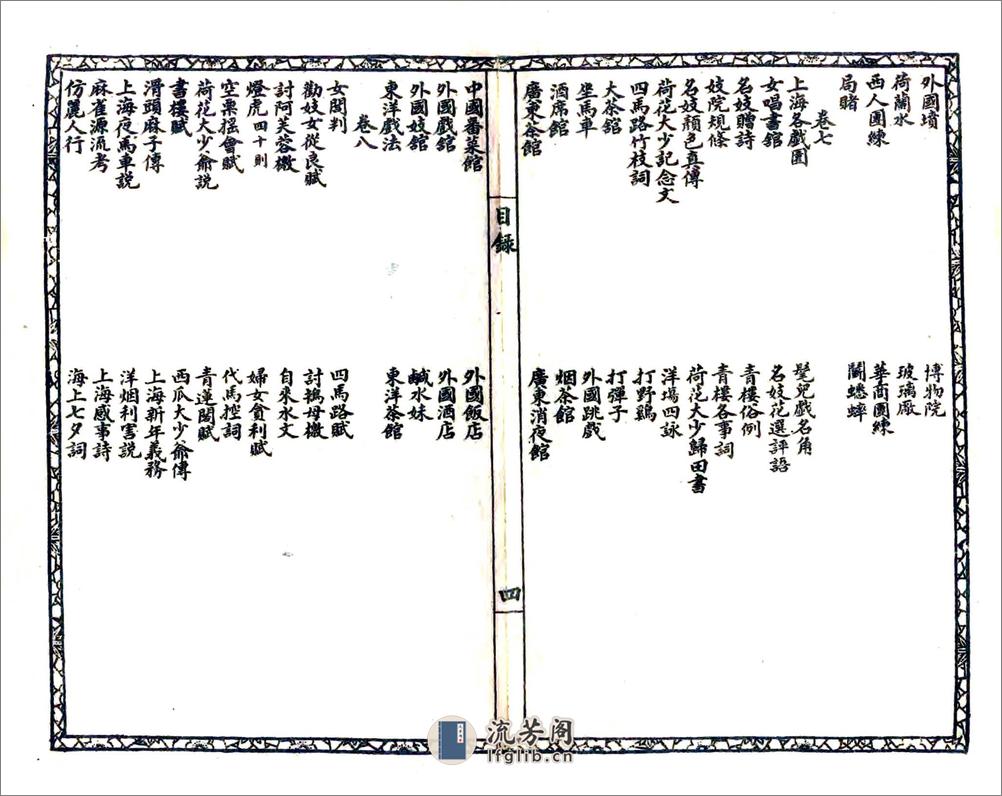 外國墳　博物院
荷蘭水　玻璃廠
西人團練　華商團練
局賭　鬬蟋蟀
卷七
上海各戲園　髦兒戲名角
女唱書館　名妓花選評語
名妓贈詩　青樓俗例
妓院規條　青樓各事詞
名妓顏色真傳　荷花大少歸田書
荷花大少記念文　洋場四詠
四馬路竹枝詞　打野鷄
大茶館　打彈子
坐馬車　外國跳戲
酒席館　烟茶館
廣東茶館　廣東消夜館
目錄
四
中國番菜館　外國飯店
外國戲館　外國酒店
外國妓館　鹹水妹
東洋戲法　東洋茶館
卷八
女閭判　四馬路賦
勸妓女從良賦　討鴇母檄
討阿芙蓉檄　自來水文
燈虎四十則　婦女貪利賦
空票搖會賦　代馬控詞
荷花大少爺説　青蓮閣賦
書樓賦　西瓜大少爺傳
滑頭麻子傳　上海新年義務
上海夜馬車説　洋烟利害説
麻雀源流考　上海感事詩
仿麗人行　海上七夕詞
流芳阁
lfglib.cn